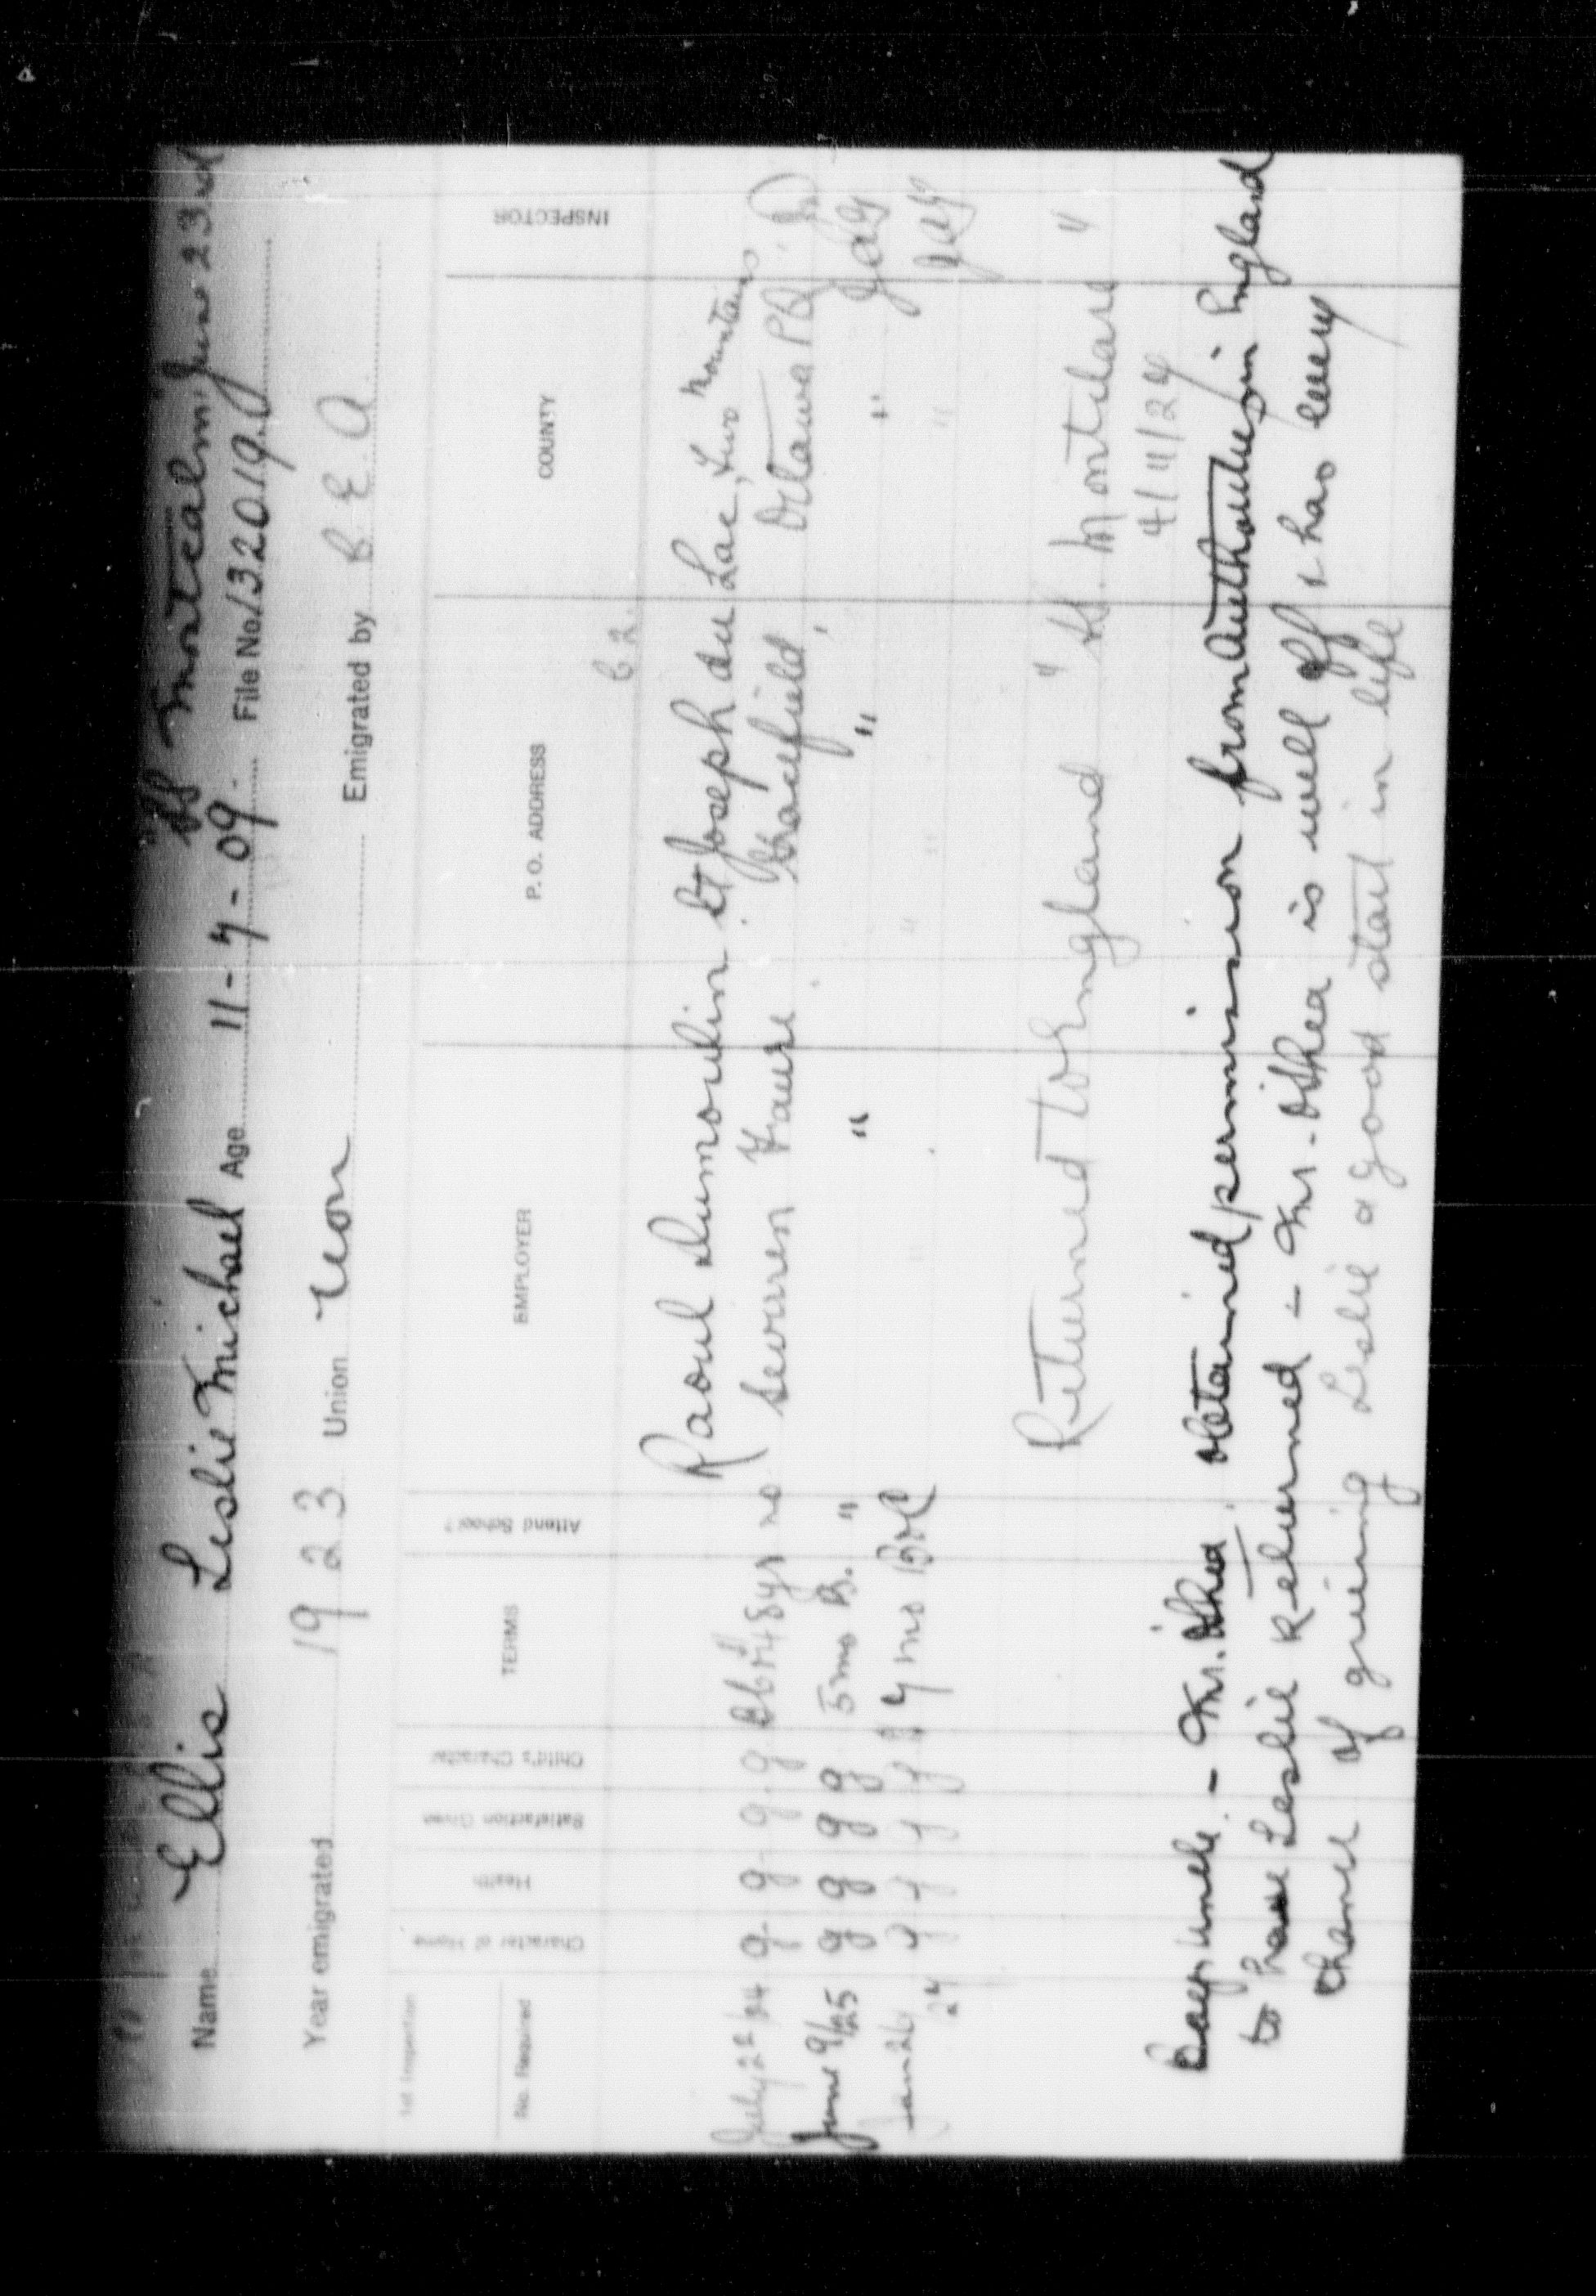 SS Montcalm June 23rd
Name Ellis Leslie Michael Age 11-7-09 File No. 132019
Year emigrated 1923 Union non Emigrated by B E A
1st Inspection
No. Required Character of Home Health Satisfaction Given Child's Character TERMS Attend School? EMPLOYER P. O. ADDRESS COUNTY INSPECTOR
Raoul Dumoulin St Joseph du Lac, Two Mountains
July 22/24 g. g. g. g no Fraure Gracefield, Ottawa P.Q.
June 9/25 g g g g 5 mo B. " " " "
Jan 26 7 mo
Returned to England " SS. Montclare "
4/11/24
Boy's uncle - Mr. O'Shea, obtained permission from Authorities in England
to have Leslie Returned - Mr. O'Shea is well off & has every
chance of giving Leslie a good start in life